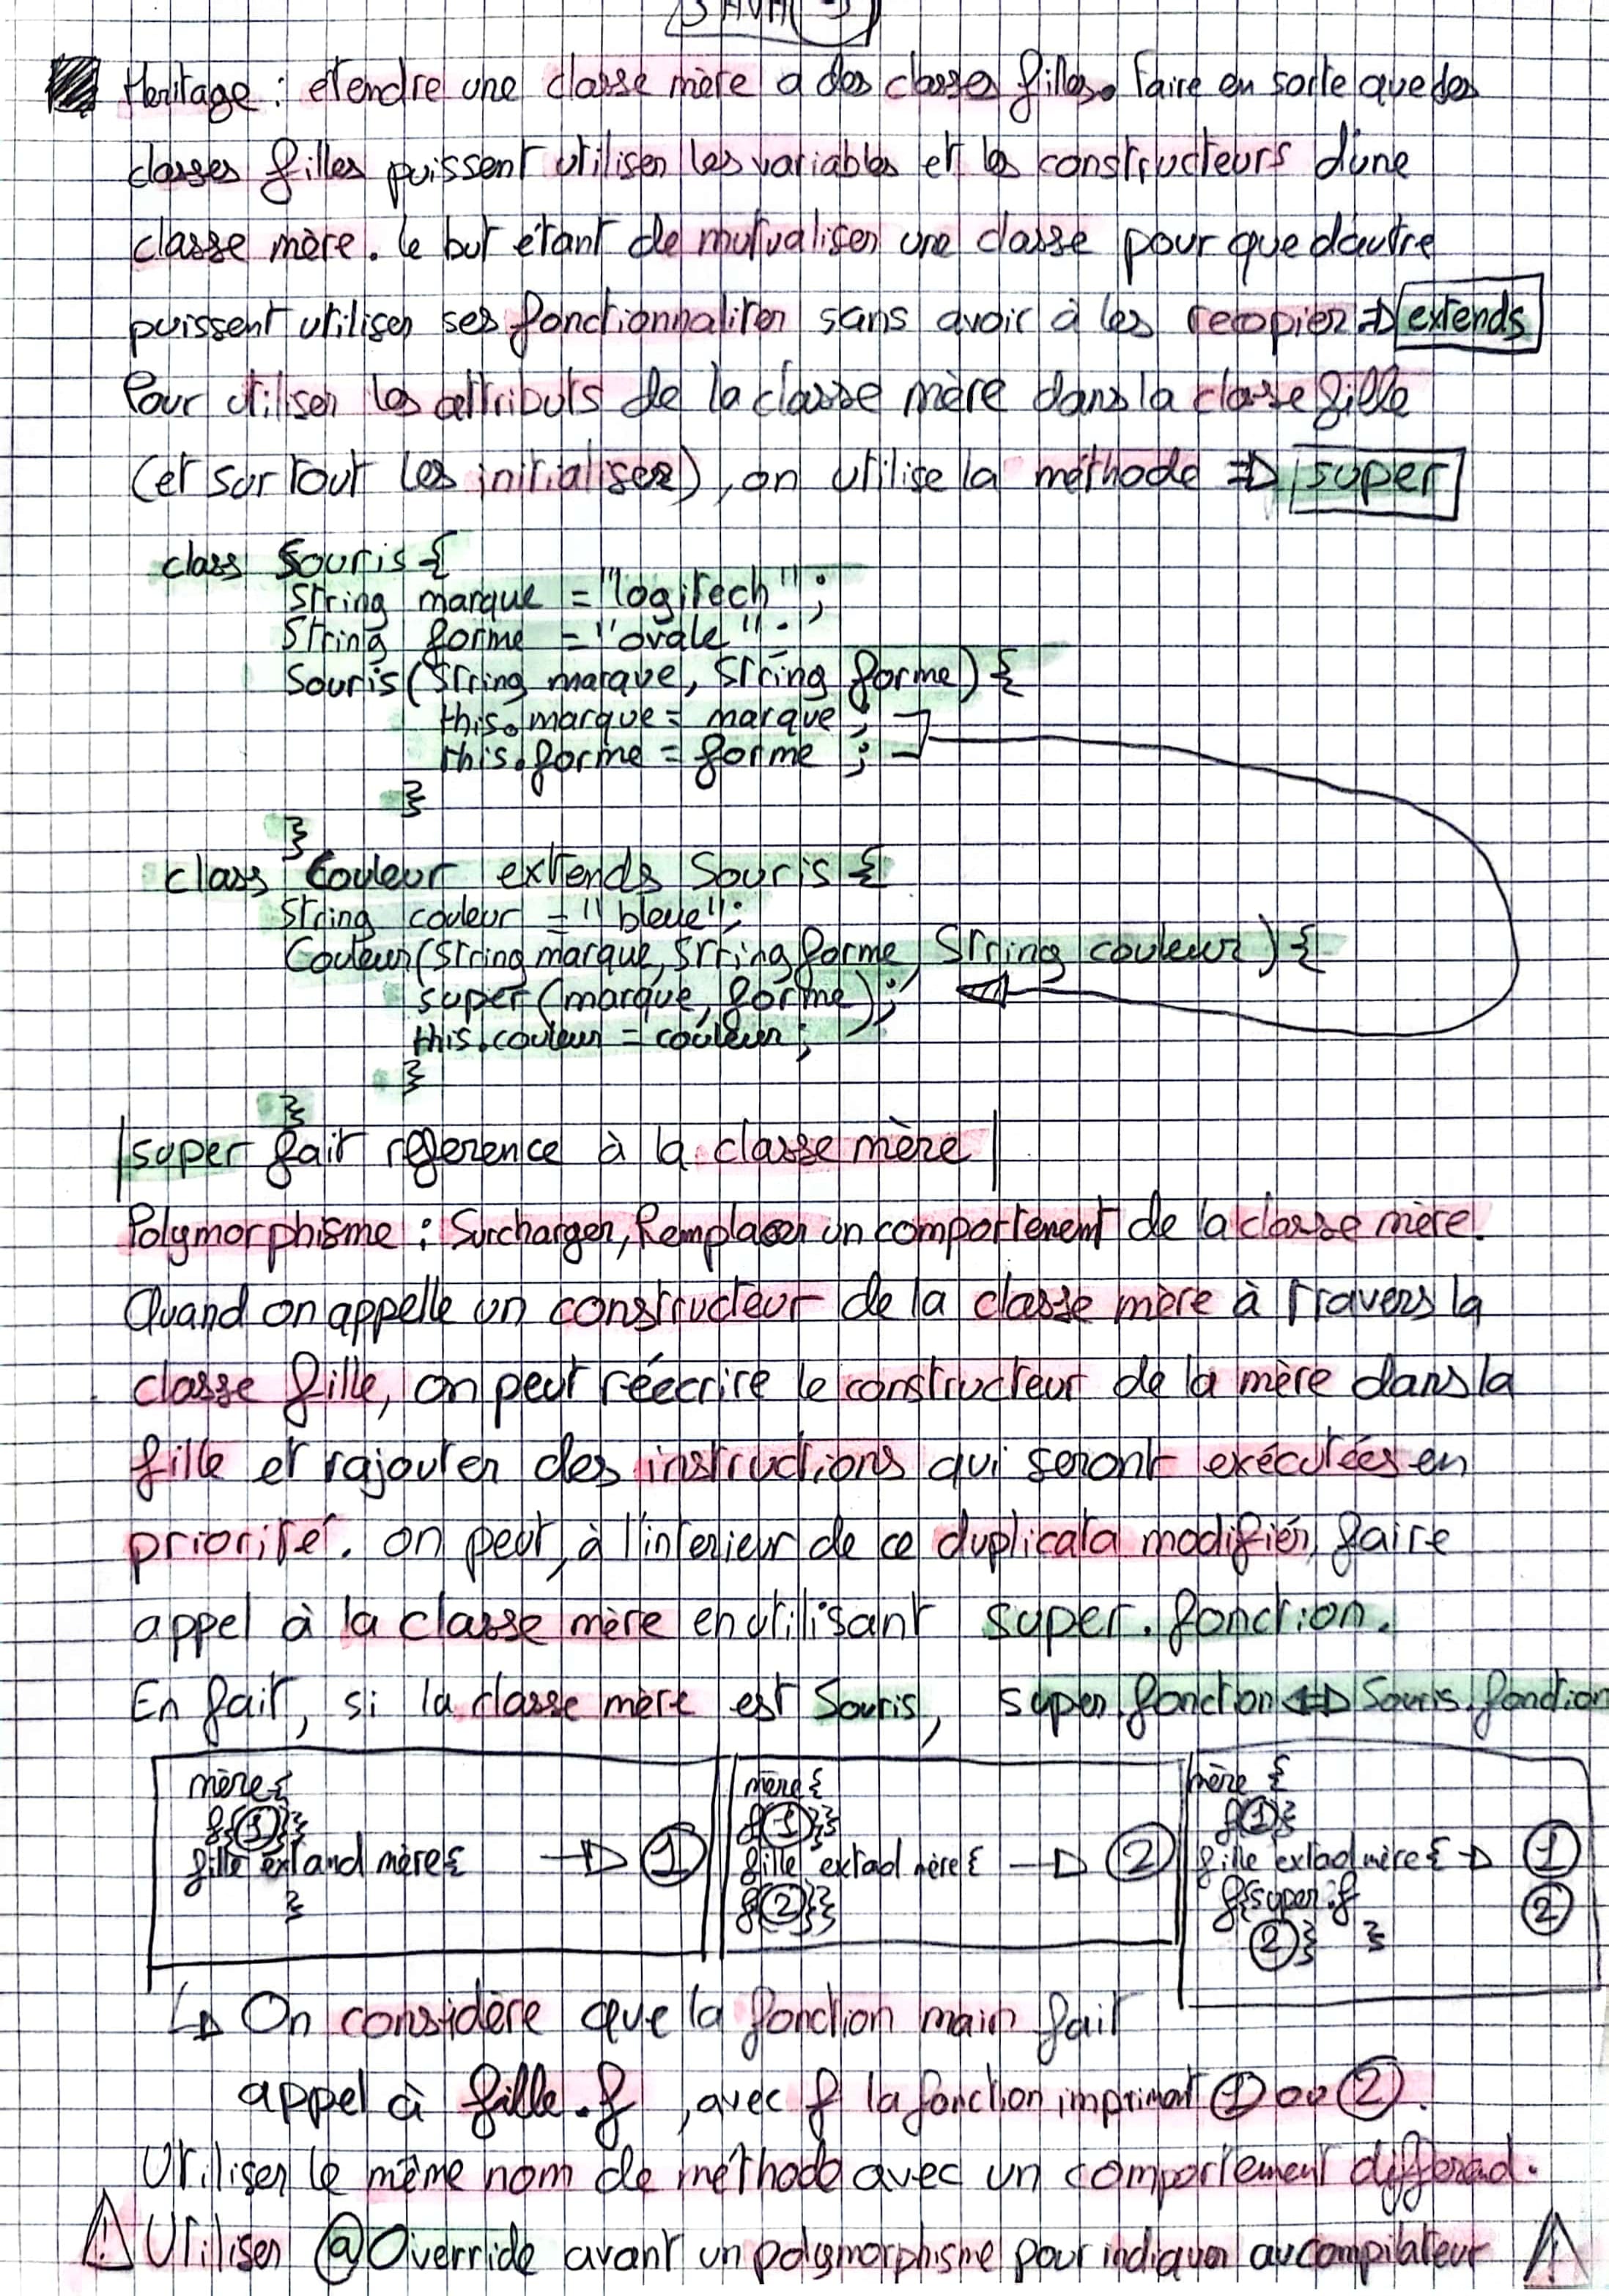 Heritage : étendre une classe mère a des classes filles. Faire en sorte que des
classes filles puissent utiliser les variables et les constructeurs d'une
classe mère. le but étant de mutualiser une classe pour que d'autre
puissent utiliser ses fonctionnaliter sans avoir à les recopier => extends
Pour utiliser les attributs de la classe mère dans la classe fille
(et surtout les initialiser), on utilise la méthode => super
class Souris {
String marque = "logitech" ;
String forme = "ovale" ;
Souris(String marque, String forme) {
this.marque = marque ;
this.forme = forme ;
}
}
class Couleur extends Souris {
String couleur = "bleue";
Couleur(String marque, String forme, String couleur) {
super(marque, forme);
this.couleur = couleur;
}
}
super fait reference à la classe mère
Polymorphisme : Surcharger, Remplacer un comportement de la classe mère.
Quand on appelle un constructeur de la classe mère à travers la
classe fille, on peut réécrire le constructeur de la mère dans la
fille et rajouter des instructions qui seront exécutées en
priorité. on peut, à l'interieur de ce duplicata modifier, faire
appel à la classe mère en utilisant super.fonction.
En fait, si la classe mère est Souris, super.fonction <=> Souris.fonction
mère{
f{①}}
fille extand mère{ → ①
}
mère{
f{①}}
fille extad mère{ → ②
f{②}}
mère {
f{①}}
fille extad mère{ → ①
f{super.f ②
②} }
↳ On considère que la fonction main fait
appel à fille.f , avec f la fonction imprimant ① ou ②.
Utiliser le même nom de méthode avec un comportement différend.
⚠ Utiliser @Override avant un polymorphisme pour indiquer au compilateur ⚠